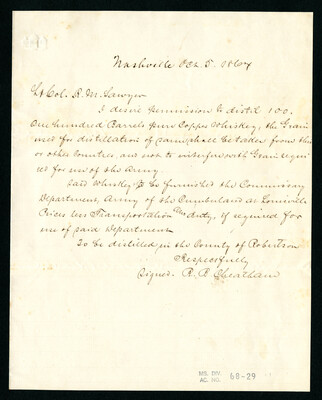 Nashville Oct 5. 1864
Lt Col. R. M. Sawyer
I desire permission to distil 100.
One hundred Barrels pure Copper Whiskey, the Grain
used for distillation of same shall be taken from this
or other Counties, and not to interfere with Grain requi
red for use of the Army.
Said Whiskey to be furnished the Commissary
Department, Army of the Cumberland at Louisville
Prices less Transportation duty, if required for
use of said Department
To be distilled in the County of Robertson
Respectfully
Signed. R. B. Cheatham
MS. DIV.
AC. NO. 68-29